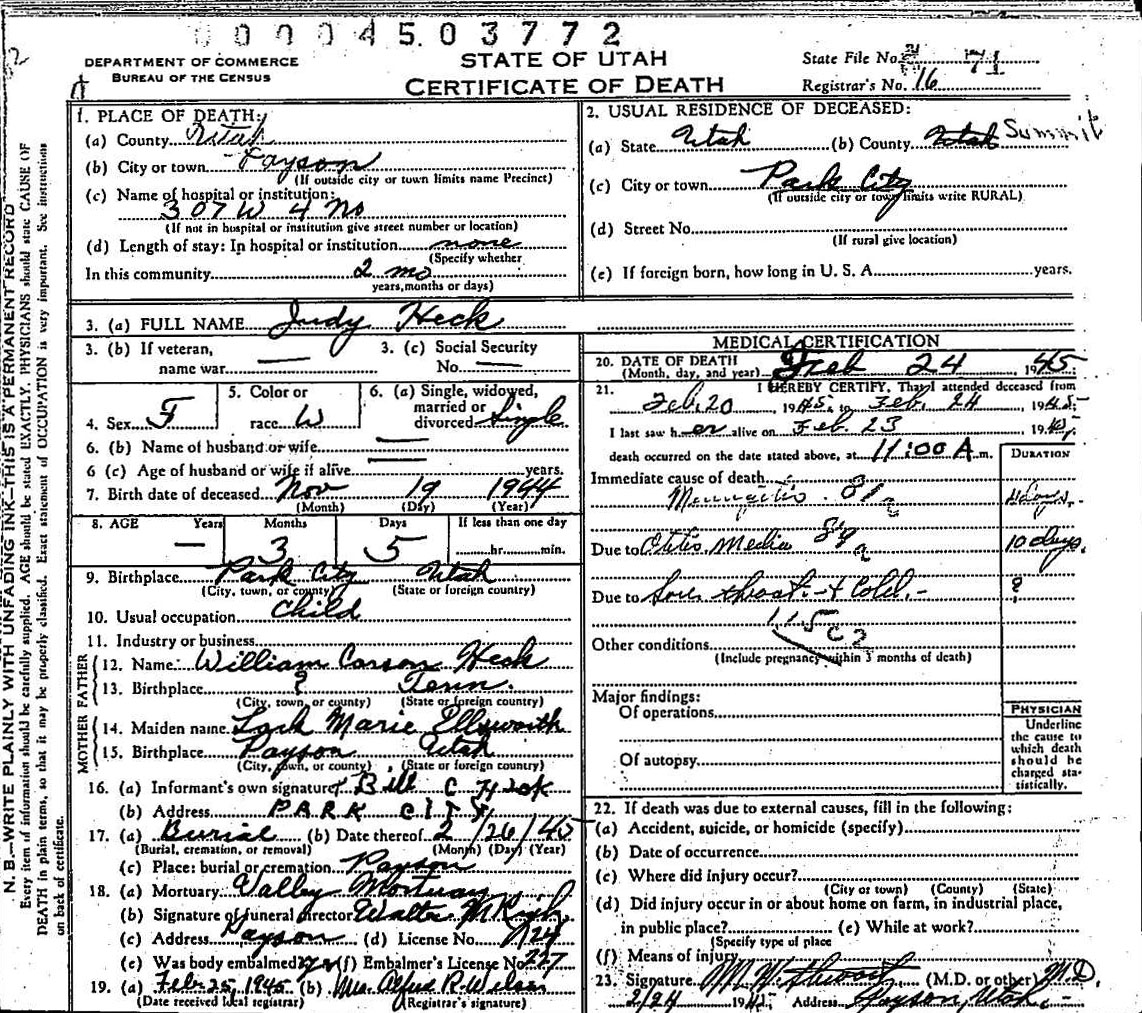 0 0 0 0 4 5 0 3 7 7 2
DEPARTMENT OF COMMERCE
BUREAU OF THE CENSUS
STATE OF UTAH
CERTIFICATE OF DEATH
State File No. 71
Registrar's No. 16
N. B.—WRITE PLAINLY WITH UNFADING INK—THIS IS A PERMANENT RECORD
Every item of information should be carefully supplied. AGE should be stated EXACTLY. PHYSICIANS should state CAUSE OF
DEATH in plain terms, so that it may be properly classified. Exact statement of OCCUPATION is very important. See instructions
on back of certificate.
1. PLACE OF DEATH:
(a) County Utah
(b) City or town Payson
(If outside city or town limits name Precinct)
(c) Name of hospital or institution:
307 W 4 No
(If not in hospital or institution give street number or location)
(d) Length of stay: In hospital or institution none
(Specify whether
In this community 2 mo
years, months or days)
2. USUAL RESIDENCE OF DECEASED:
(a) State Utah (b) County Utah Summit
(c) City or town Park City
(If outside city or town limits write RURAL)
(d) Street No.
(If rural give location)
(e) If foreign born, how long in U. S. A. years.
3. (a) FULL NAME Judy Heck
3. (b) If veteran,
name war —
3. (c) Social Security
No. —
4. Sex F
5. Color or
race W
6. (a) Single, widowed,
married or
divorced Single
6. (b) Name of husband or wife —
6 (c) Age of husband or wife if alive — years.
7. Birth date of deceased Nov 19 1944
(Month) (Day) (Year)
8. AGE Years Months Days If less than one day
— 3 5 hr. min.
9. Birthplace Park City Utah
(City, town, or county) (State or foreign country)
10. Usual occupation Child
11. Industry or business
FATHER
12. Name: William Carson Heck
13. Birthplace ? Tenn.
(City, town, or county) (State or foreign country)
MOTHER
14. Maiden name Marie Ellsworth
15. Birthplace Payson Utah
(City, town, or county) (State or foreign country)
16. (a) Informant's own signature Bill C Heck
(b) Address PARK CITY
17. (a) Burial (b) Date thereof 2/26/45
(Burial, cremation, or removal) (Month) (Day) (Year)
(c) Place: burial or cremation Payson
18. (a) Mortuary Valley Mortuary
(b) Signature of funeral director Walter
(c) Address Payson (d) License No.
(e) Was body embalmed? (f) Embalmer's License No. 227
19. (a) Feb. 25, 1945 (b) Mrs. Alfred R. Wilson
(Date received local registrar) (Registrar's signature)
MEDICAL CERTIFICATION
20. DATE OF DEATH
(Month, day, and year) Feb 24 1945
21. I HEREBY CERTIFY, That I attended deceased from
Feb. 20, 1945, to Feb. 24 1945
I last saw her alive on Feb. 23 1945,
death occurred on the date stated above, at 11:00 A.m.
DURATION
Immediate cause of death
81 a
Due to Otitis Media 89 a 10 days.
Due to Sore throat + Cold. — ?
115 c 2
Other conditions
(Include pregnancy within 3 months of death)
Major findings:
Of operations
Of autopsy
PHYSICIAN
Underline
the cause to
which death
should be
charged sta-
tistically.
22. If death was due to external causes, fill in the following:
(a) Accident, suicide, or homicide (specify)
(b) Date of occurrence
(c) Where did injury occur?
(City or town) (County) (State)
(d) Did injury occur in or about home on farm, in industrial place,
in public place? (e) While at work?
(Specify type of place
(f) Means of injury
23. Signature (M.D. or other) M.D.
2/24 1945 Address Payson, Utah.